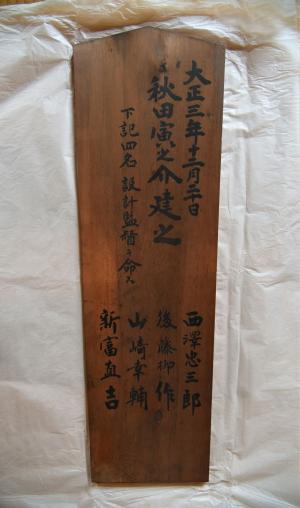 大正三年十二月二十日
秋田寅之介建之
下記四名設計監督ヲ命ス
西澤忠三郎
後藤柳作
山崎幸輔
新富直吉